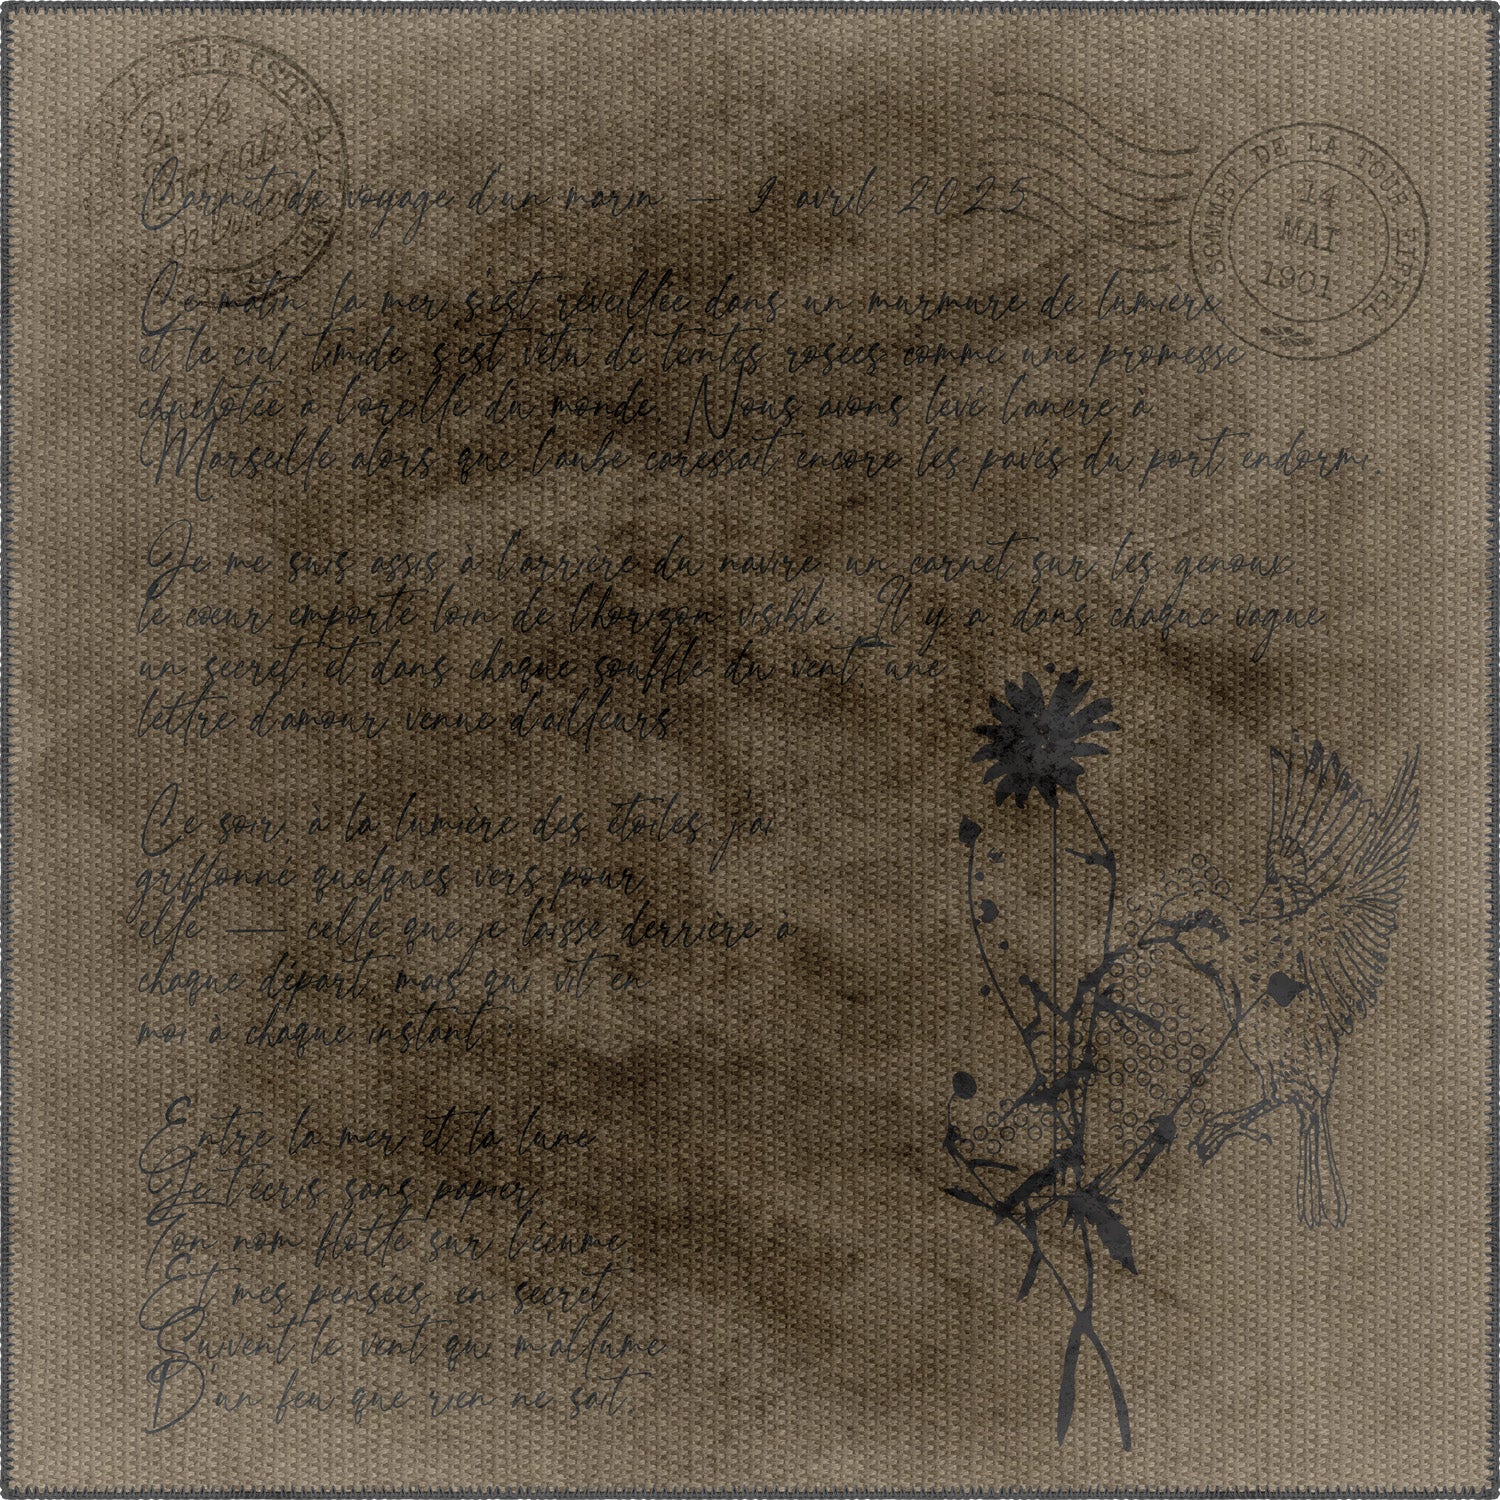 Carnet de voyage d'un marin — 9 avril 2025
Ce matin, la mer s'est réveillée dans un murmure de lumière
et le ciel, timide, s'est vêtu de teintes rosées comme une promesse
chuchotée à l'oreille du monde. Nous avons levé l'ancre à
Marseille alors que l'aube caressait encore les pavés du port endormi.
Je me suis assis à l'arrière du navire, un carnet sur les genoux,
le cœur emporté loin de l'horizon visible. Il y a dans chaque vague
un secret, et dans chaque souffle du vent, une
lettre d'amour venue d'ailleurs.
Ce soir, à la lumière des étoiles, j'ai
griffonné quelques vers pour
elle — celle que je laisse derrière à
chaque départ, mais qui vit en
moi à chaque instant :
Entre la mer et la lune
Je t'écris sans papier,
Ton nom flotte sur l'écume
Et mes pensées, en secret,
Suivent le vent qui m'allume
D'un feu que rien ne sait.
SOMMET DE LA TOUR EIFFEL
14
MAI
1901